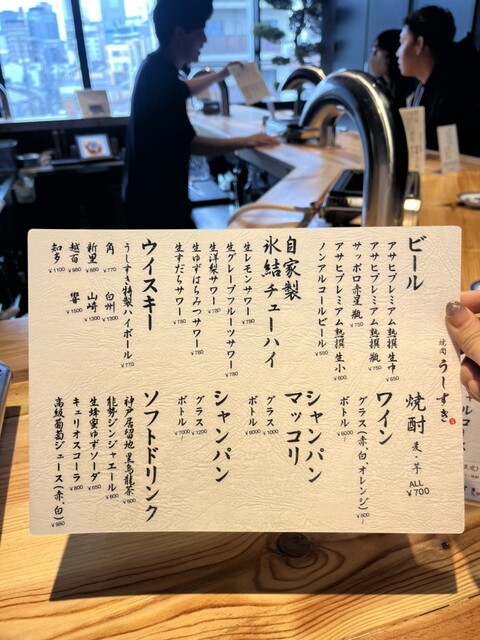 焼肉 うしすき
ビール
アサヒプレミアム熟撰 生中 ¥650
アサヒプレミアム熟撰 瓶 ¥750
サッポロ赤星 瓶 ¥750
アサヒプレミアム熟撰 生小 ¥600
ノンアルコールビール ¥550
自家製
氷結チューハイ
生レモンサワー ¥780
生グレープフルーツサワー ¥780
生洋梨サワー ¥780
生ゆずはちみつサワー ¥780
生すだちサワー ¥780
ウイスキー
うしすき特製ハイボール ¥770
角 ¥770
白州 ¥1300
新里 ¥880
山崎 ¥1300
越百 ¥980
響 ¥1500
知多 ¥1100
焼酎 麦・芋 ALL ¥700
ワイン
グラス(赤、白、オレンジ) ¥800〜
ボトル ¥6000〜
シャンパン
マッコリ
グラス ¥1000
ボトル ¥6000
シャンパン
グラス ¥1200
ボトル ¥7000
ソフトドリンク
神戸居留地 黒烏龍茶 ¥600
能勢ジンジャエール ¥600
生蜂蜜ゆずソーダ ¥650
キュリオスコーラ ¥800
高級葡萄ジュース(赤、白) ¥980